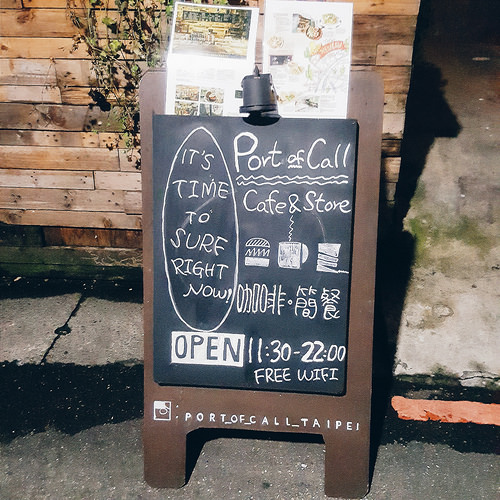 IT'S
TIME
TO
SURF
RIGHT
NOW!
Port of Call
Cafe & Store
咖啡·簡餐
OPEN 11:30-22:00
FREE WIFI
: PORT_OF_CALL_TAIPEI